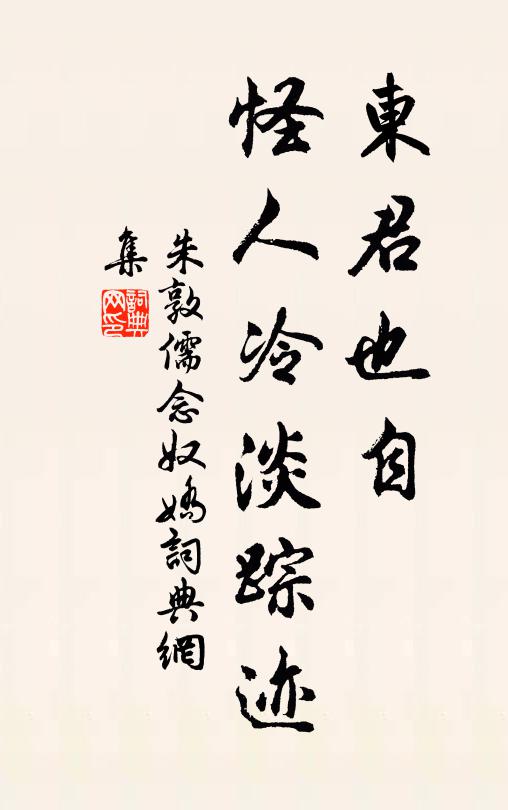 東君也自
怪人冷淡踪迹
朱敦儒念奴嬌詞典網
集
詞典
网印